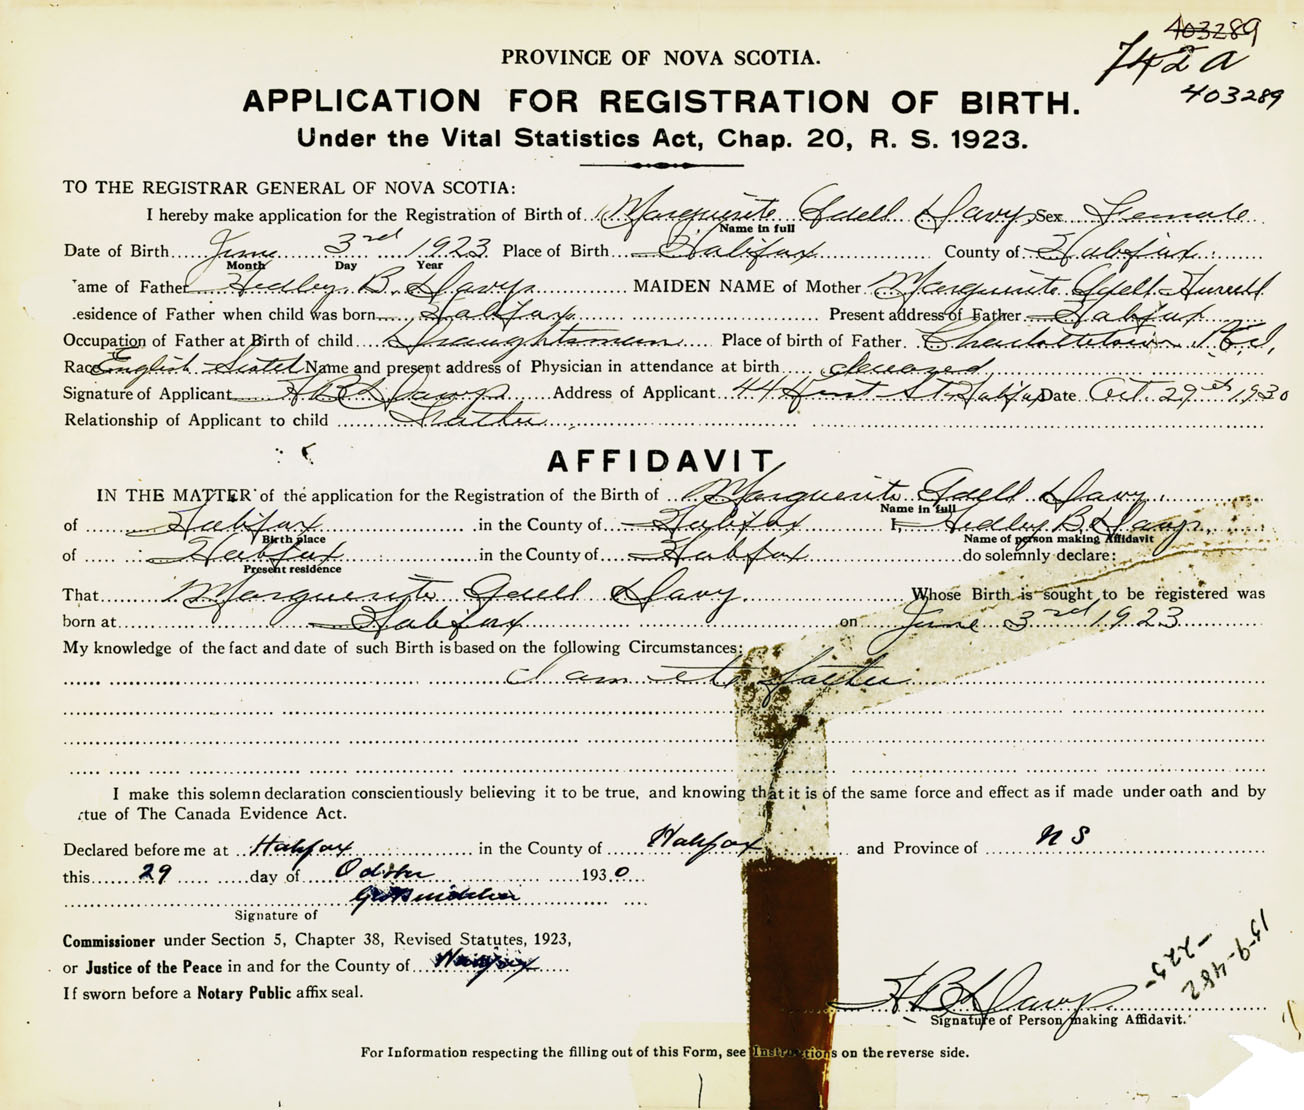 403289
742 a
403289
PROVINCE OF NOVA SCOTIA.
APPLICATION FOR REGISTRATION OF BIRTH.
Under the Vital Statistics Act, Chap. 20, R. S. 1923.
TO THE REGISTRAR GENERAL OF NOVA SCOTIA:
I hereby make application for the Registration of Birth of Marguerite Odell Davy Sex Female
Name in full
Date of Birth June 3rd 1923 Place of Birth Halifax County of Halifax
Month Day Year
ame of Father Hedley B. Davy MAIDEN NAME of Mother Marguerite Odell
esidence of Father when child was born Halifax Present address of Father Halifax
Occupation of Father at Birth of child Draughtsman Place of birth of Father. Charlottetown P.E.I.
Race English Name and present address of Physician in attendance at birth deceased
Signature of Applicant H B Davy Address of Applicant 44 St Halifax Date Oct. 29th 1930
Relationship of Applicant to child Father
AFFIDAVIT
IN THE MATTER of the application for the Registration of the Birth of Marguerite Odell Davy
Name in full
of Halifax in the County of Halifax I, Hedley B. Davy
Birth place Name of person making Affidavit
of Halifax in the County of Halifax do solemnly declare:
Present residence
That Marguerite Odell Davy Whose Birth is sought to be registered was
born at Halifax on June 3rd 1923
My knowledge of the fact and date of such Birth is based on the following Circumstances:
I am its father
I make this solemn declaration conscientiously believing it to be true, and knowing that it is of the same force and effect as if made under oath and by
rtue of The Canada Evidence Act.
Declared before me at Halifax in the County of Halifax and Province of N S
this 29 day of October 1930
Signature of
Commissioner under Section 5, Chapter 38, Revised Statutes, 1923,
or Justice of the Peace in and for the County of Halifax
If sworn before a Notary Public affix seal.
15-9-482
-225-
H B Davy
Signature of Person making Affidavit.
For Information respecting the filling out of this Form, see Instructions on the reverse side.